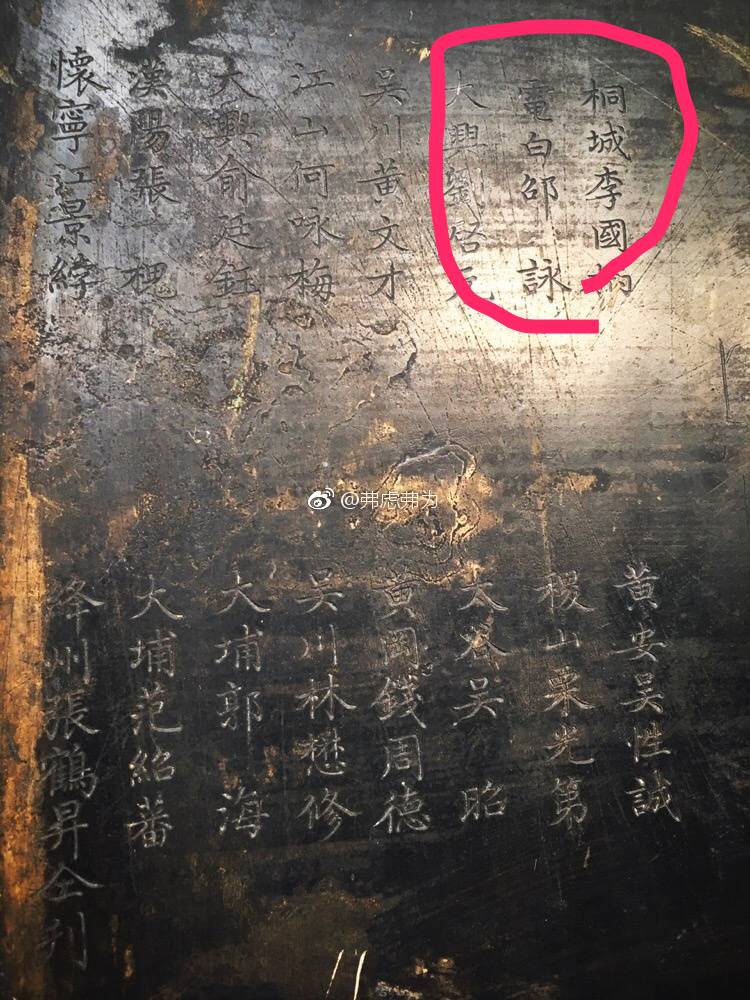 桐城李國
電白邵詠
大興劉啓元
吳川黃文才
江山何咏梅
大興俞廷鈺
漢陽張槐
懷寧江景綍
黃安吳性誠
稷山光第
吳昭
黃岡錢周德
吳川林懋修
大埔郭海
大埔范紹蕃
絳州張鶴昇仝刋
@弗虑弗为